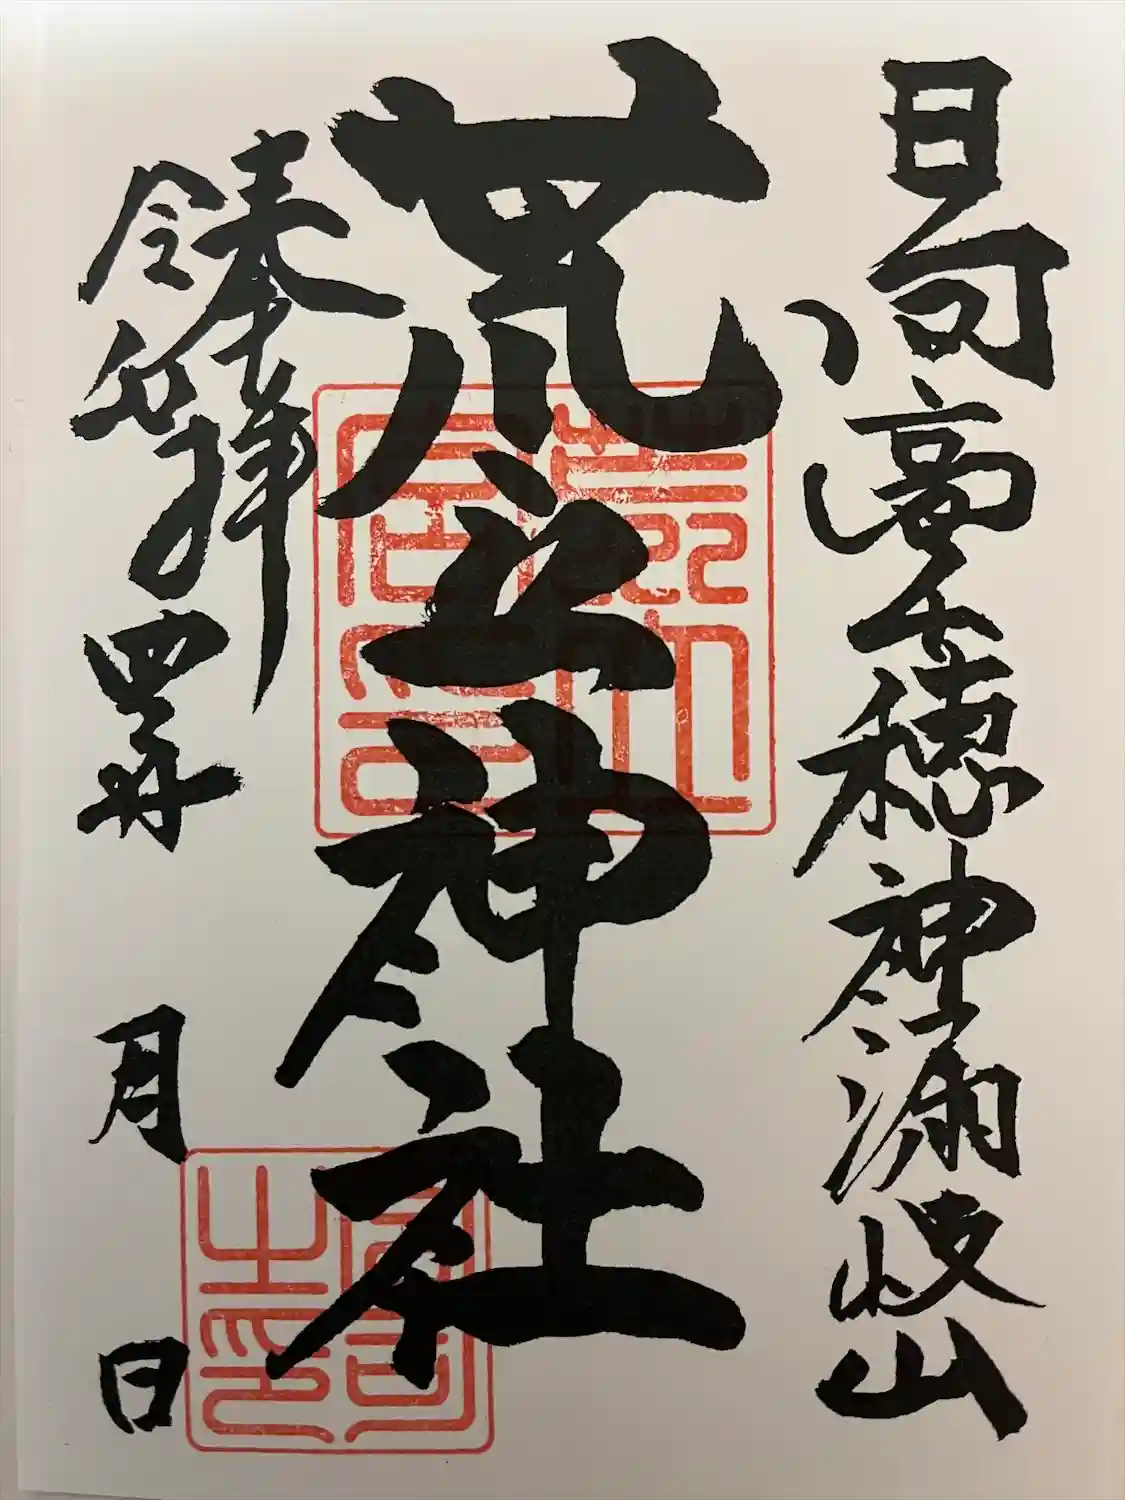 日向高千穂神漏岐山
荒立神社
奉拝
令和四年 月 日
荒立宮印
宮司之印